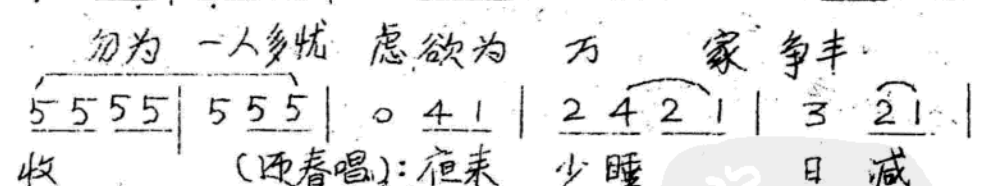 勿为 一人多忧 虑欲为 万 家 争丰
5 5 5 5 | 5 5 5 | 0 4 1 | 2 4 2 1 | 3 2 1 |
收 (迎春唱):夜来 少睡 日 减